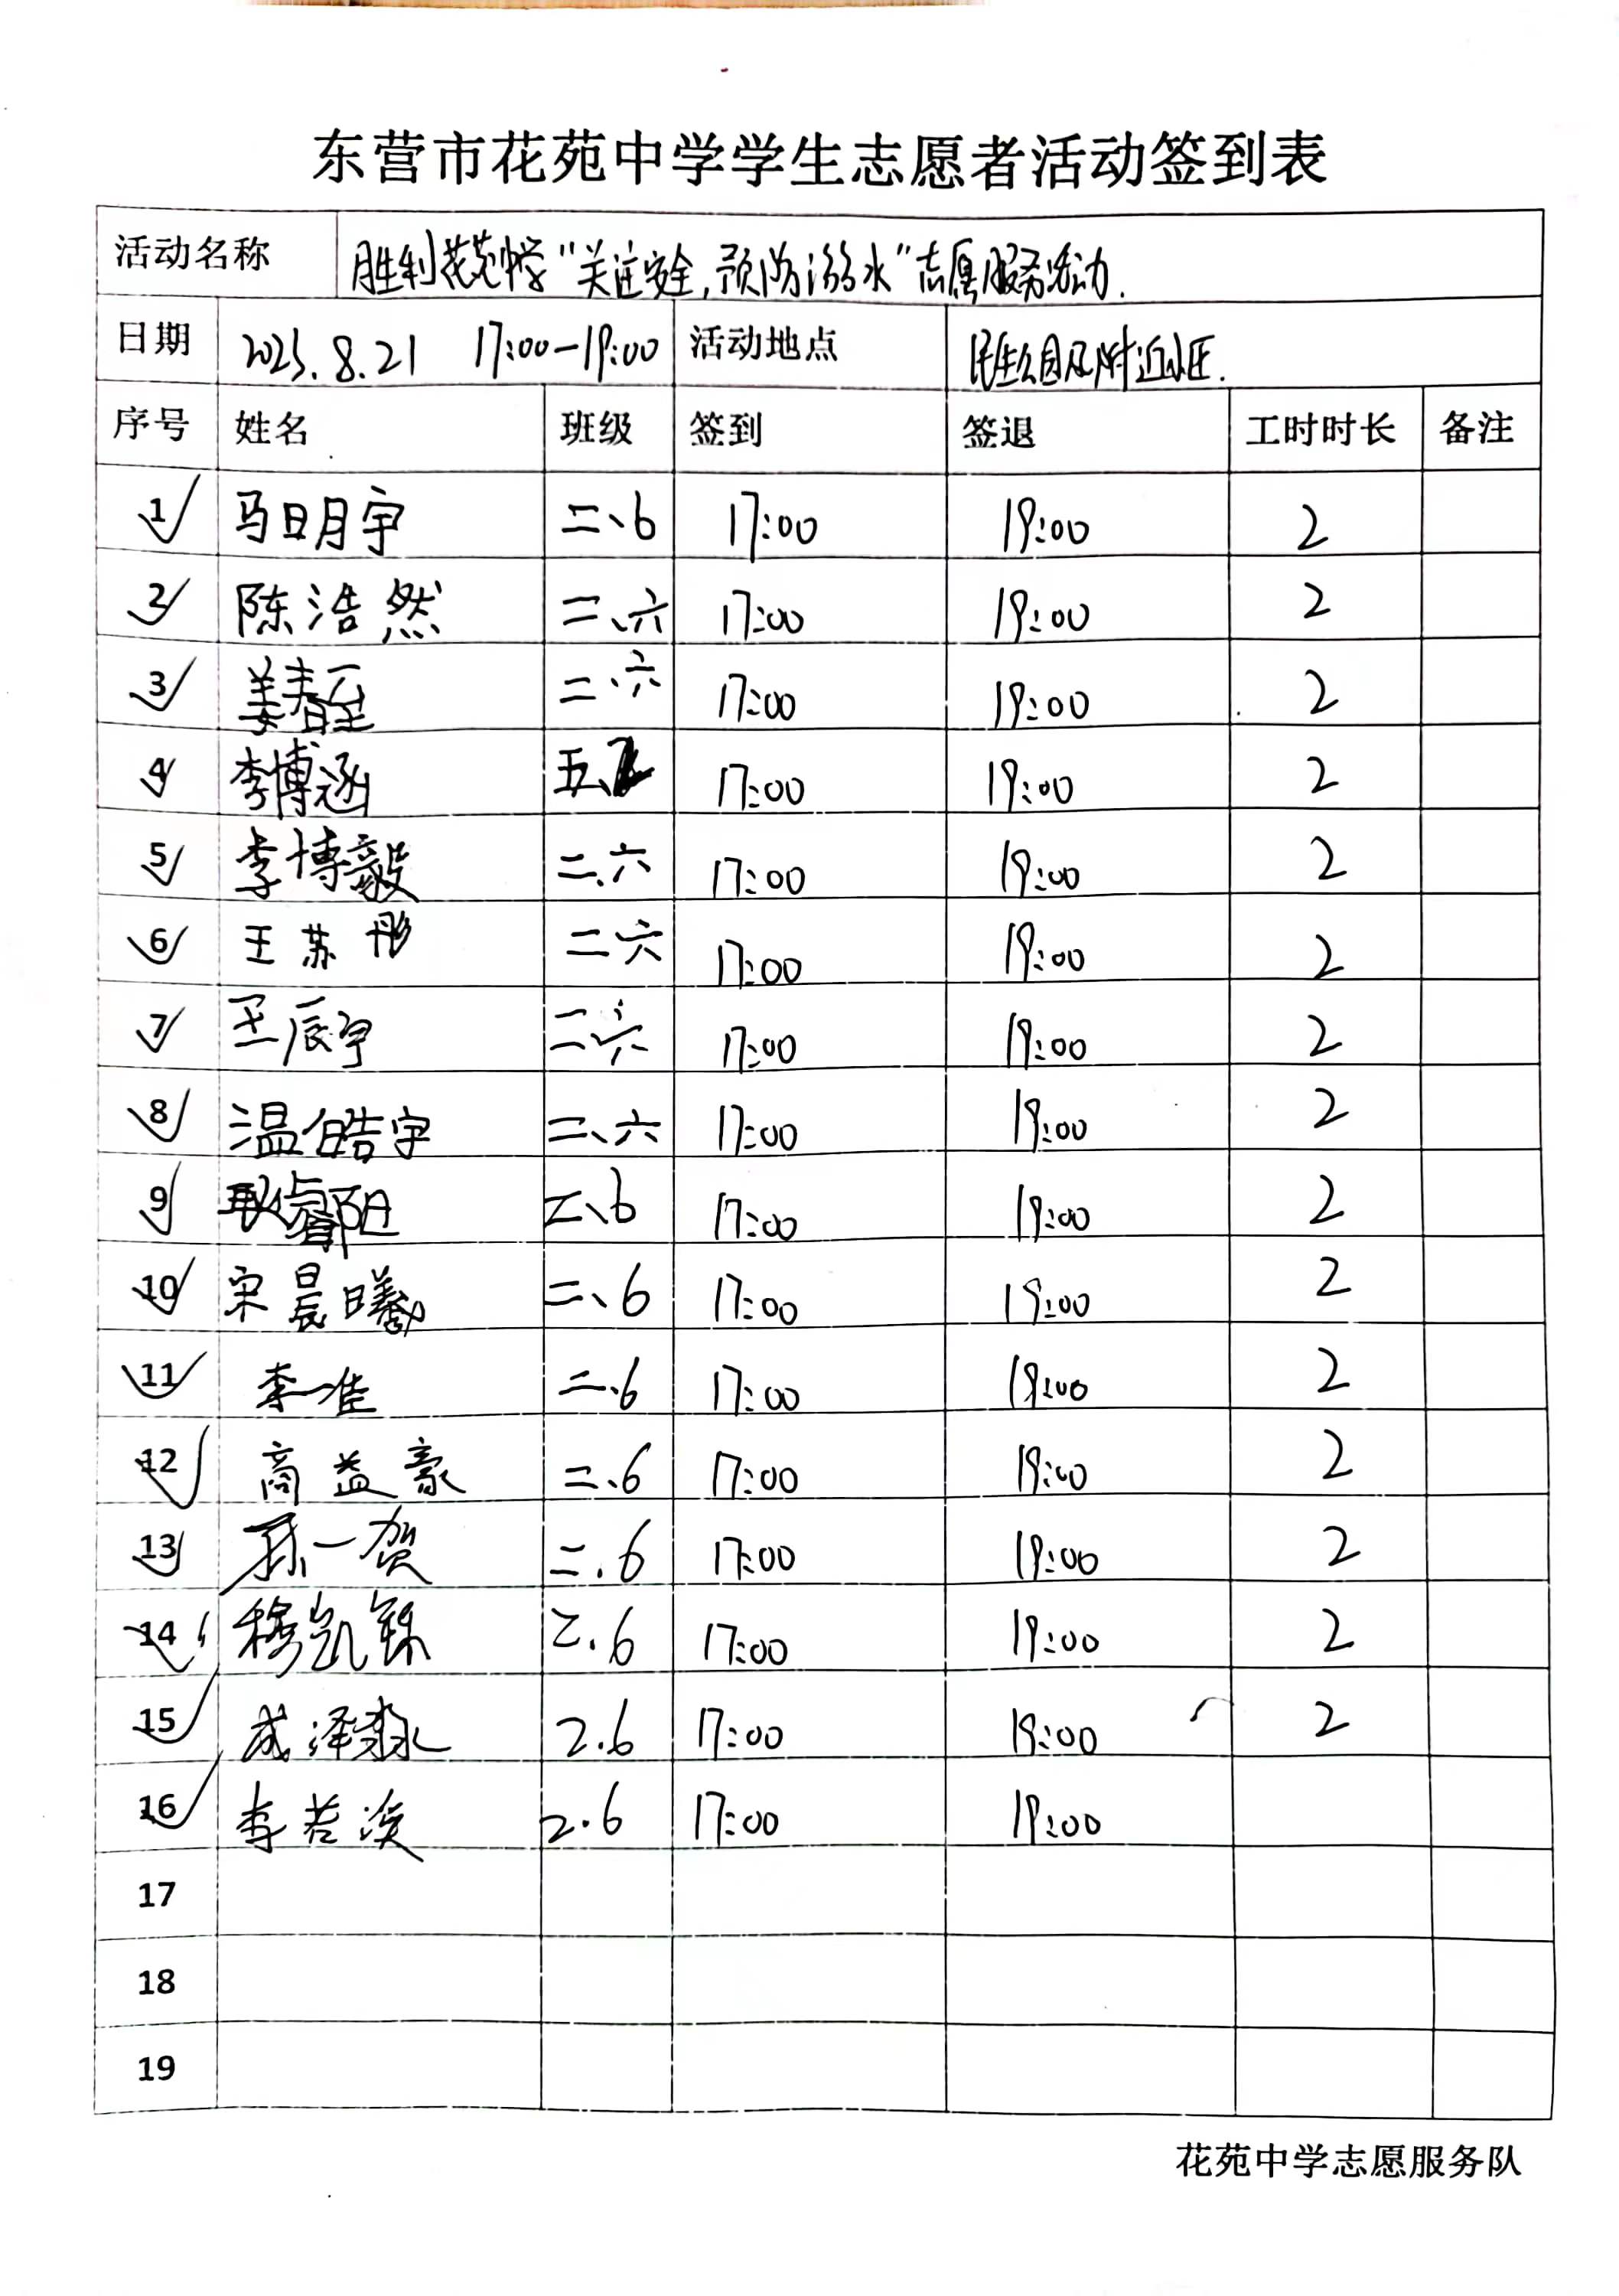 东营市花苑中学学生志愿者活动签到表
活动名称 胜利花苑中学“关注安全,预防溺水”志愿服务活动.
日期 2023.8.21 17:00-19:00 活动地点 民生公园及附近小区.
序号 姓名 班级 签到 签退 工时时长 备注
1 马明宇 二、6 17:00 19:00 2
2 陈浩然 二、六 17:00 19:00 2
3 姜春至 二、六 17:00 19:00 2
4 李博涵 五、 17:00 19:00 2
5 李博毅 二、六 17:00 19:00 2
6 王苏彤 二六 17:00 19:00 2
7 王辰宇 二六 17:00 19:00 2
8 温皓宇 二、六 17:00 19:00 2
9 耿睿阳 二、6 17:00 19:00 2
10 宋晨曦 二、6 17:00 19:00 2
11 李一准 二.6 17:00 19:00 2
12 商益豪 二.6 17:00 19:00 2
13 孙一贺 二.6 17:00 19:00 2
14 穆凯铄 二.6 17:00 19:00 2
15 成泽淼 2.6 17:00 19:00 2
16 李若溪 2.6 17:00 19:00
17
18
19
花苑中学志愿服务队